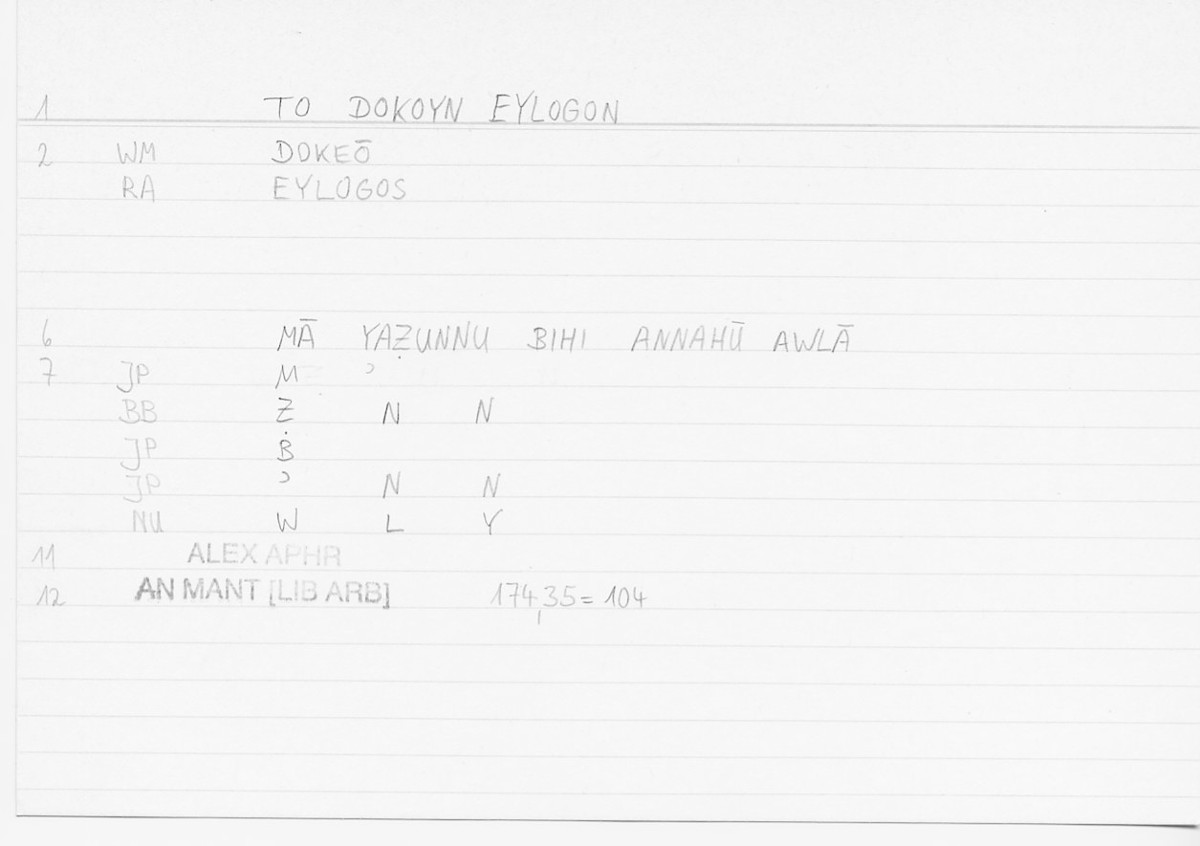 1 TO DOKOYN EYLOGON
2 WM DOKEŌ
RA EYLOGOS
6 MĀ YAẒUNNU BIHI ANNAHŪ AWLĀ
7 JP M ʾ
BB Ẓ N N
JP B
JP ʾ N N
NU W L Y
11 ALEX APHR
12 AN MANT [LIB ARB] 174,35 = 104